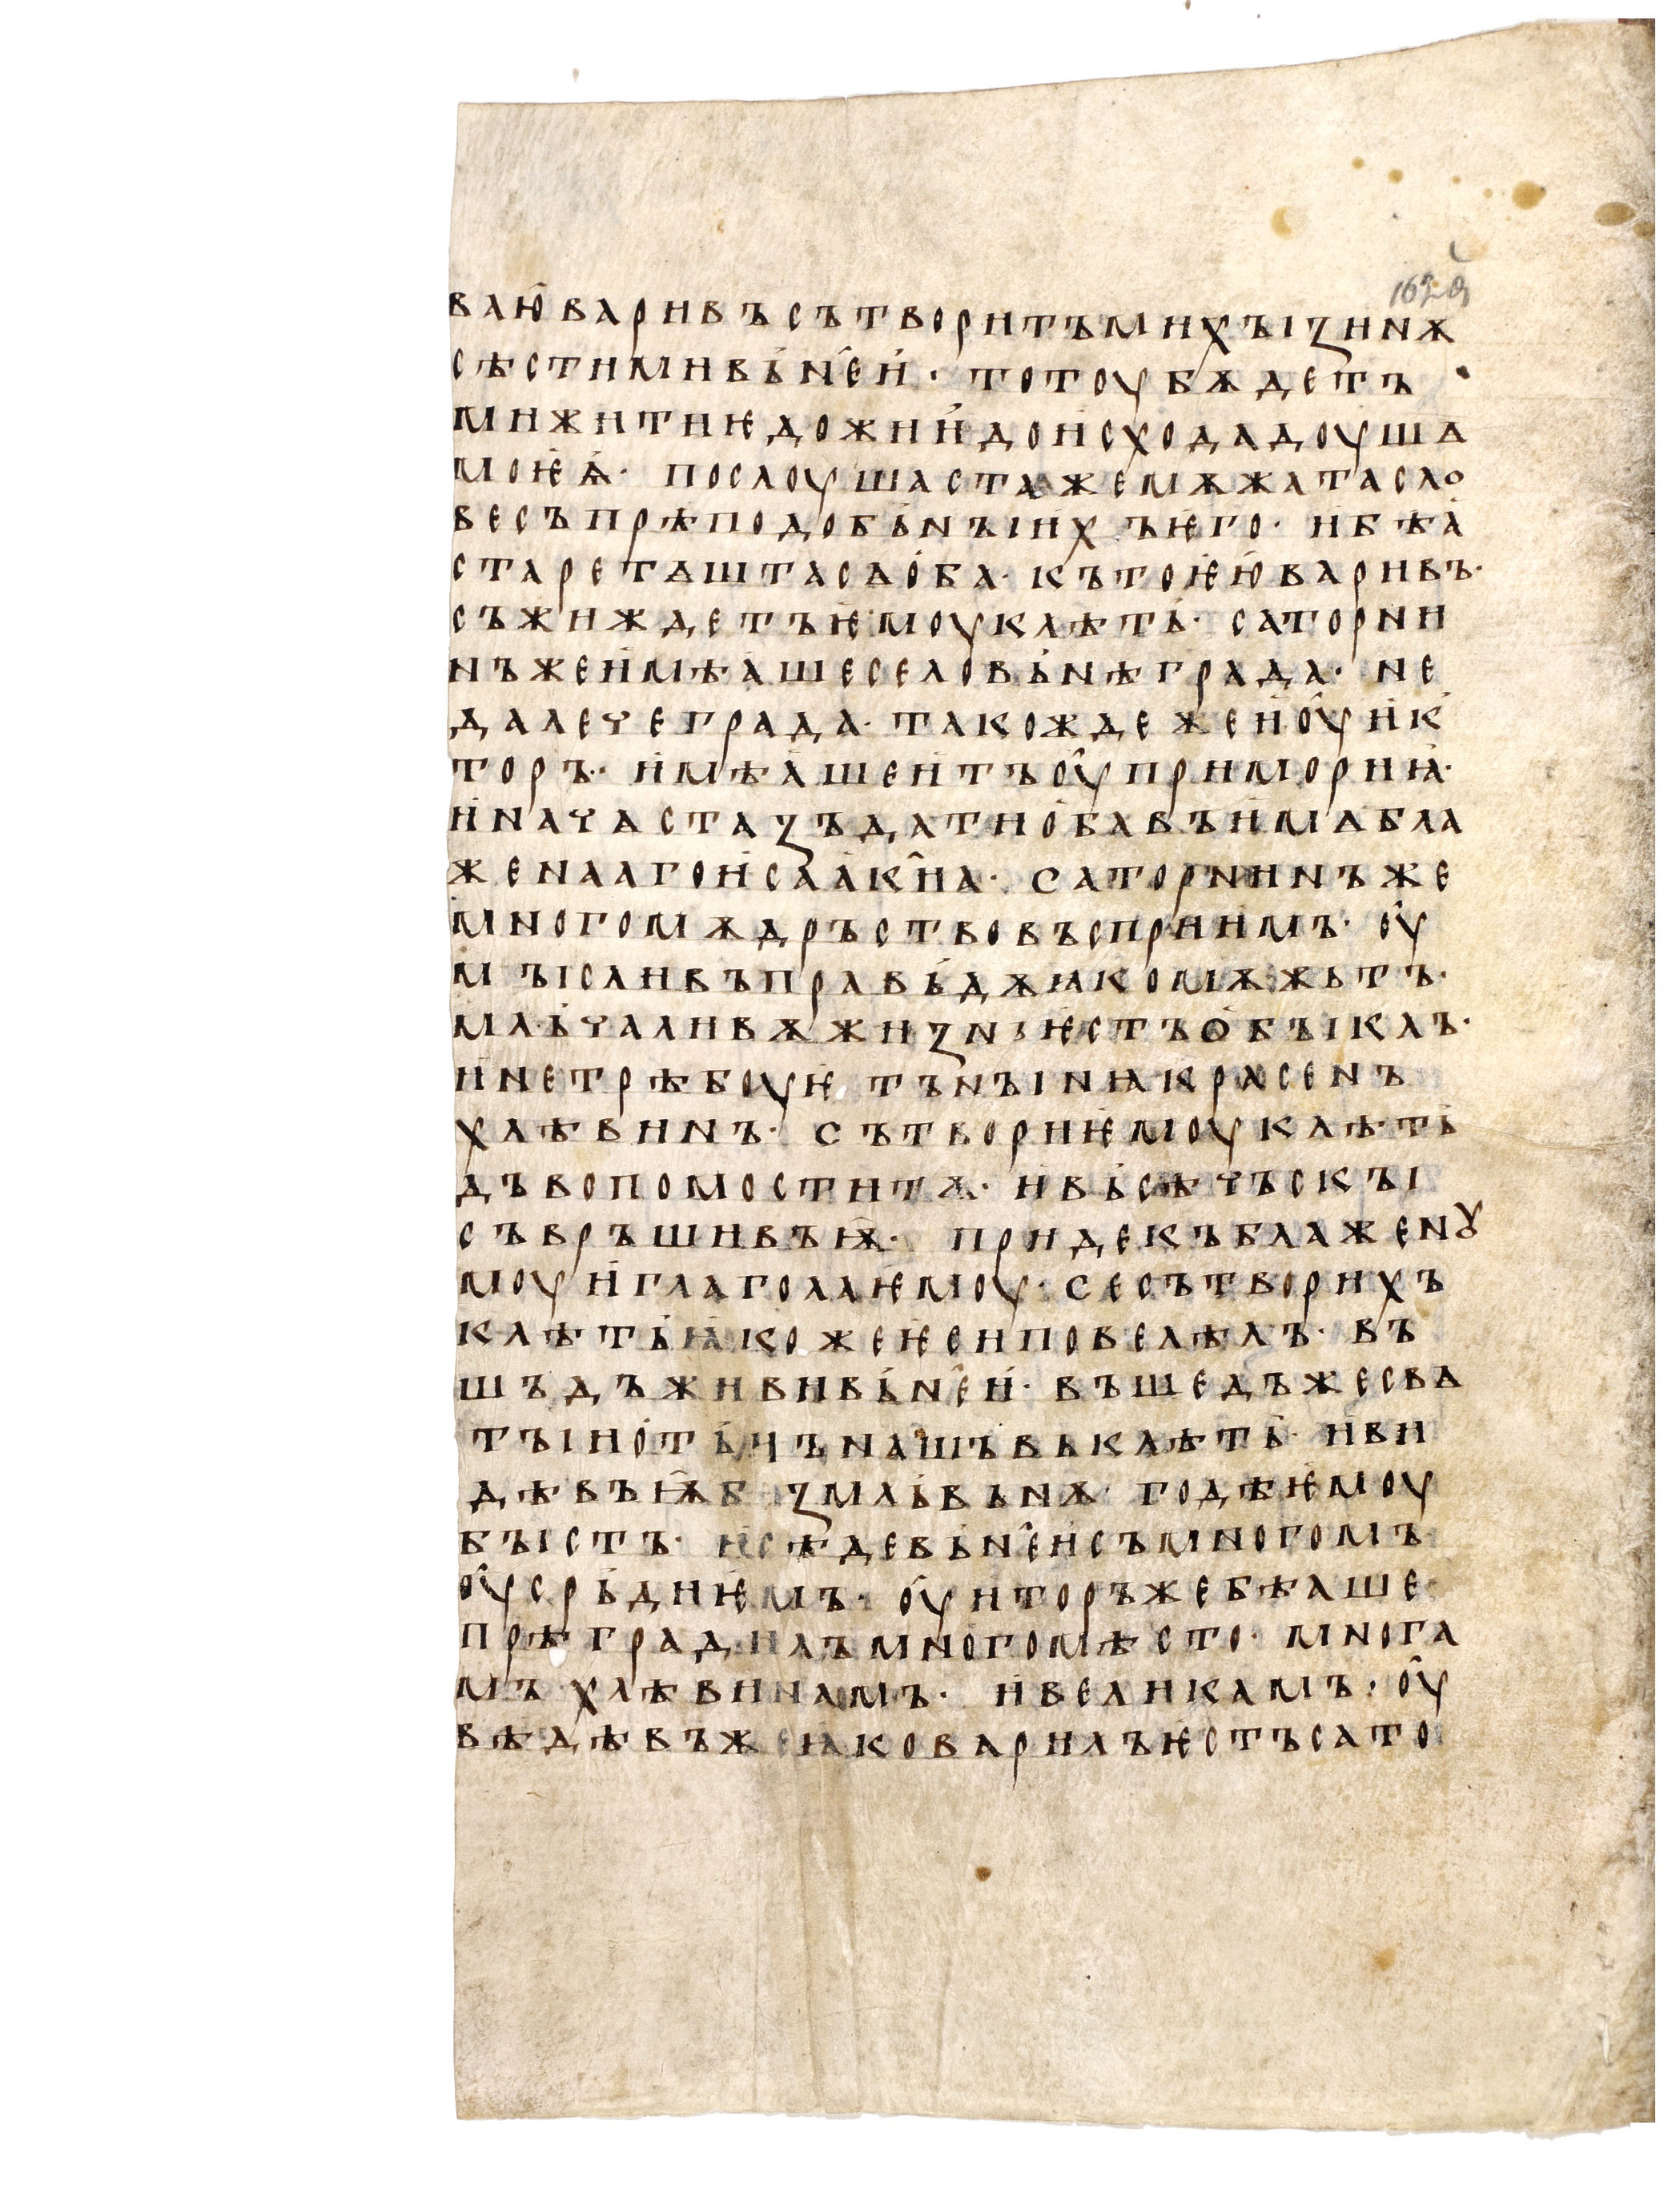 ваю̂варивъсътворитъмихъізинѫ
сѣстимивь҆н̂е҆и҆· тотоубѫдетъ ·
мижитиѥдожии҆дои҆сходадоушѧ
моѥ҆ѩ҆· послоушастажемѫжатасло
весъпрѣподобь҆нъіихъѥ҆го· и҆бѣа҆
старетѧштасѧо҆ба· кътоѥ҆ю҆варивъ·
съжиждетъѥ҆моуклѣть҆· саторни
нъжеи҆мѣа҆шеселовь҆нѣграда· не
далечеграда· такождежеи҆о̂уик҆
торъ· и҆мѣа҆шеи҆тъо̂уприморіꙗ·
и҆начѧстазъдатио҆бавъи҆мѧбла
женаагои҆саа҆к̂иа· саторнинъже
многомѫдръствовъсприимъ· о̂у
мъісливъправь҆дѫꙗкомѫжьтъ·
мль҆чаливѫжизнъѥ҆стъо҆бъіклъ·
и҆нетрѣбоуѥтънъінꙗкрасенъ
хлѣвинъ· сътвориѥ҆моуклѣть҆
дъвопомоститѫ· и҆вь҆сѣчъскъі
съвръшивъѭ̂· придекъблаженꙋ
моуи҆глаголаѥ҆моу· сесътворихъ
клѣть҆ꙗ҆кожеѥ҆сиповелѣлъ· въ
шъдъжививь҆н̂е҆и҆· въшедъжесвѧ
тъіио҆ть҆цънашъвьклѣть҆· и҆ви
дѣвъѭ̂безмль҆вьнѫ· годѣѥ҆моу
бъістъ· и҆сѣдевь҆н̂е҆и҆съмногомъ
о̂усрь҆диѥ҆мъ· о̂уиторъжебѣаше
прѣградилъмногомѣсто· многа
мъхлѣвинамъ· и҆великамъ· о̂у
вѣдѣвъжеꙗ҆коварилъѥ҆стъсато